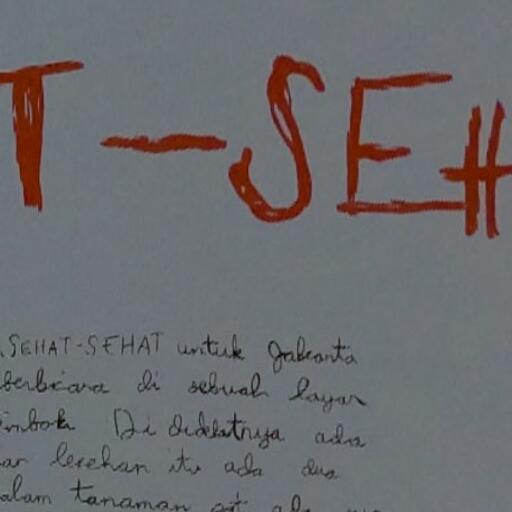 T-SEH
SEHAT-SEHAT untuk Jakarta
berbicara di sebuah layar
Di didekatnya ada
lesehan itu ada dua
alam tanaman